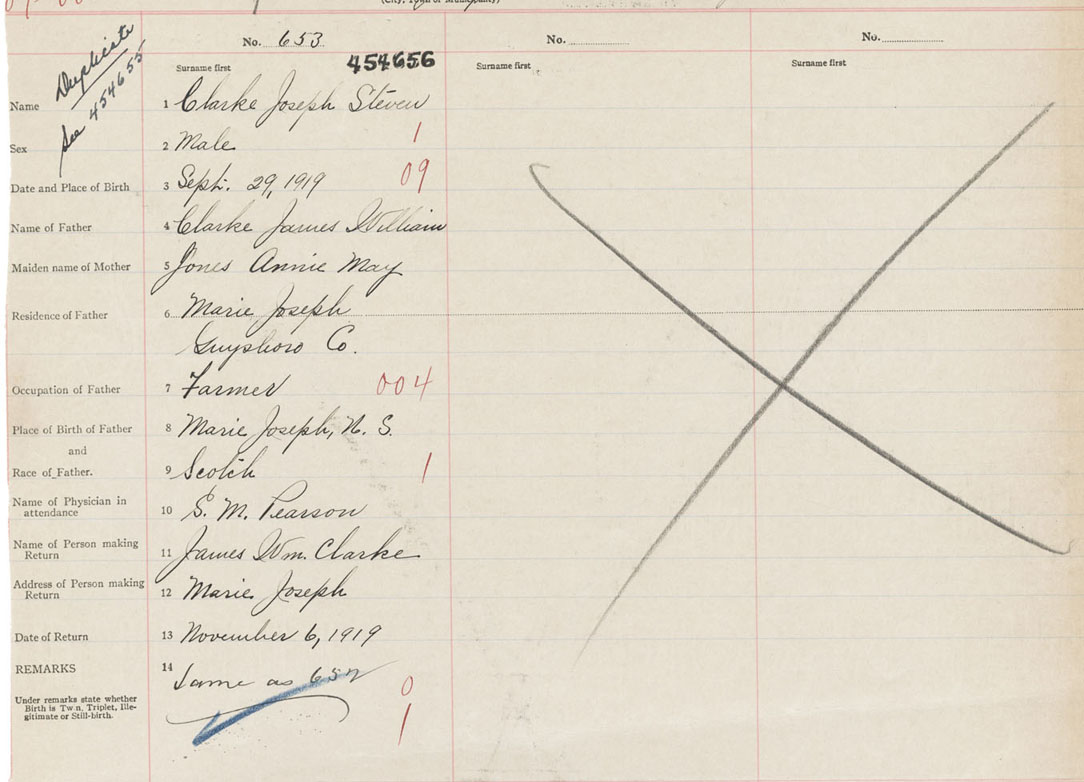 (City, Town or Municipality)
Duplicate
See 454655
No. 653
No.
No.
454656
Surname first
Surname first
Surname first
Name 1 Clarke Joseph Steven
Sex 2 Male 1
Date and Place of Birth 3 Sept. 29, 1919 09
Name of Father 4 Clarke James William
Maiden name of Mother 5 Jones Annie May
Residence of Father 6 Marie Joseph
Guysboro Co.
Occupation of Father 7 Farmer 004
Place of Birth of Father 8 Marie Joseph, N. S.
and
Race of Father. 9 Scotch 1
Name of Physician in
attendance 10 S. M. Pearson
Name of Person making
Return 11 James Wm. Clarke
Address of Person making
Return 12 Marie Joseph
Date of Return 13 November 6, 1919
REMARKS 14 Same as 652
0
Under remarks state whether
Birth is Twin, Triplet, Ille-
gitimate or Still-birth.
1